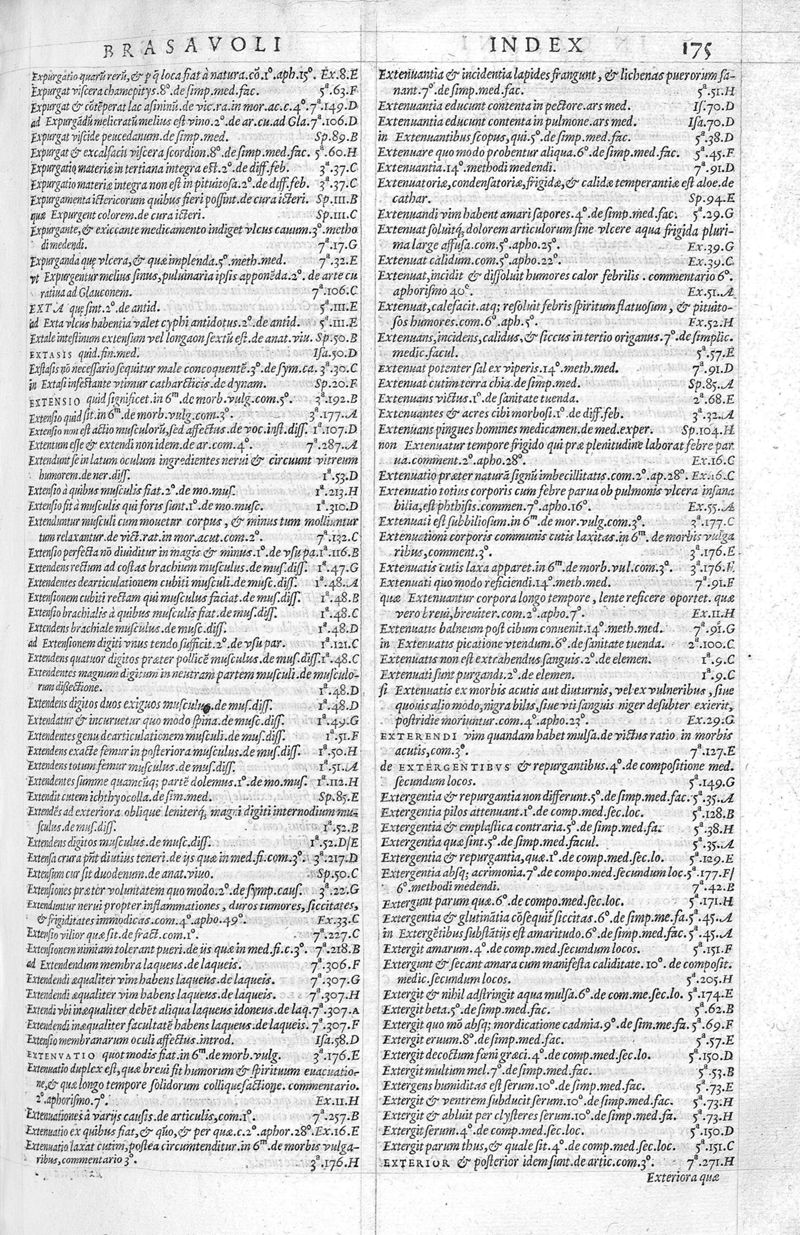 BRASAVOLI INDEX 175
Expurgatio quarū rerū, & p q̄ loca fiat à natura.cō.1º.aph.15º. Ex.8.E
Expurgat viscera chamepitys.8º.de simp.med.fac. 5ª.63.F
Expurgat & cōtēperat lac asininū.de vic.ra.in mor.ac.c.4º.7ª.149.D
ad Expurgādū melicratū melius est vino.2º.de ar.cu.ad Gla.7ª.106.D
Expurgat viscide peucedanum.de simp.med. Sp.89.B
Expurgat & excalfacit viscera scordion.8º.de simp.med.fac. 5ª.60.H
Expurgatio materiæ in tertiana integra est.2º.de diff.feb. 3ª.37.C
Expurgatio materiæ integra non est in pituitosa.2º.de diff.feb. 3ª.37.C
Expurgamenta ictericorum quibus fieri possint.de cura icteri. Sp.111.B
quæ Expurgent colorem.de cura icteri. Sp.111.C
Expurgante, & exiccante medicamento indiget vlcus cauum.3º.metho
di medendi. 7ª.17.G
Expurganda que vlcera, & quæ implenda.5º.meth.med. 7ª.32.E
vt Expurgentur melius sinus, puluinaria ipsis apponēda.2º. de arte cu
ratiua ad Glauconem. 7ª.106.C
EXTA quę sint.2º.de antid. 5ª.111.E
ad Exta vlcus habentia valet cyphi antidotus.2º.de antid. 5ª.111.E
Extale intestinum extensum vel longaon sextū est.de anat.viu. Sp.50.B
EXTASIS quid.fin.med. Isa.50.D
Exstasis nō necessario sequitur male concoquentē.3º.de sym.ca. 3ª.30.C
in Extasi infestante vtimur catharcticis.de dynam. Sp.20.F
EXTENSIO quid significet.in 6m.de morb.vulg.com.5º. 3ª.192.B
Extensio quid sit.in 6m.de morb.vulg.com.3º. 3ª.177.A
Extensio non est actio musculorū,sed affectus.de voc.inst.diss. 1ª.107.D
Extentum esse & extendi non idem.de ar.com.4º. 7ª.287.A
Extendunt se in latum oculum ingredientes nerui & circuunt vitreum
humorem.de ner.diss. 1ª.53.D
Extensio à quibus musculis fiat.2º.de mo.mus. 1ª.213.H
Extensio fit à musculis qui fortes sunt.1º.de mo.musc. 1ª.310.D
Extenduntur musculi cum mouetur corpus, & minus tum molliuntur
tum relaxantur.de vict.rat.in mor.acut.com.2º. 7ª.132.C
Extensio perfecta nō diuiditur in magis & minus.1º.de vsu pa.1ª.116.B
Extendens rectum ad costas brachium musculus.de mus.diss. 1ª.47.G
Extendentes dearticulationem cubiti musculi.de musc.diss. 1ª.48.A
Extensionem cubiti rectam qui musculus faciat.de mus.diss. 1ª.48.B
Extensio brachialis à quibus musculis fiat.de mus.diss. 1ª.48.C
Extendens brachiale musculus.de musc.diss. 1ª.48.D
ad Extensionem digiti vnus tendo sufficit.2º.de vsu par. 1ª.121.C
Extendens quatuor digitos præter pollicē musculus.de mus.diss.1ª.48.C
Extendentes magnum digitum in neutram partem musculi.de musculo-
rum dissectione. 1ª.48.D
Extendens digitos duos exiguos musculus.de mus.diss. 1ª.48.D
Extendatur & incuruetur quo modo spina.de musc.diss. 1ª.49.G
Extendentes genu dearticulationem musculi.de mus.diss. 1ª.51.F
Extendens exacte femur in posteriora musculus.de musc.diss. 1ª.50.H
Extendens totum femur musculus.de mus.diss. 1ª.51.A
Extendentes summe quamcūq; partē dolemus.1º.de mo.mus. 1ª.112.H
Extendit cutem ichthyocolla.de sim.med. Sp.85.E
Extendēs ad exteriora oblique leniterq́; magni digiti internodium mu-
sculus.de mus.diss. 1ª.52.B
Extendens digitos musculus.de musc.diss. 1ª.52.D/E
Extensa crura pñt diutius teneri.de ijs quæ in med.fi.com.3º. 3ª.217.D
Extensum cur sit duodenum.de anat.viuo. Sp.50.C
Extensiones præter voluntatem quo modo.2º.de symp.caus. 3ª.22.G
Extenduntur nerui propter inflammationes, duros tumores, siccitates,
& frigiditates immodicas.com.4º.apho.49º. Ex.33.C
Extensio vilior quæ sit.de fract.com.1º. 7ª.227.C
Extensionem nimiam tolerant pueri.de ijs quæ in med.fi.c.3º. 7ª.218.B
ad Extendendum membra laqueus.de laqueis. 7ª.306.F
Extendendi æqualiter vim habens laqueus.de laqueis. 7ª.307.G
Extendendi æqualiter vim habens laqueus.de laqueis. 7ª.307.H
Extendi vbi inæqualiter debēt aliqua laqueus idoneus.de laq.7ª.307.A
Extendendi inæqualiter facultatē habens laqueus.de laqueis. 7ª.307.F
Extensio membranarum oculi affectus.introd. Isa.58.D
EXTENVATIO quot modis fiat.in 6m.de morb.vulg. 3ª.176.E
Extenuatio duplex est, quæ breui fit humorum & spirituum euacuatio-
ne, & quæ longo tempore solidorum colliquefactione. commentario.
2º.aphorismo.7º. Ex.11.H
Extenuationes à varijs causis.de articulis,com.1º. 7ª.257.B
Extenuatio ex quibus fiat, & q̄uo, & per quæ.c.2º.aphor.28º.Ex.16.E
Extenuatio laxat cutim, postea circumtenditur.in 6m.de morbis vulga-
ribus,commentario 3º. 3ª.176.H
Extenuantia & incidentia lapides frangunt, & lichenas puerorum sa-
nant.7º.de simp.med.fac. 5ª.51.H
Extenuantia educunt contenta in pectore.ars med. Is.70.D
Extenuantia educunt contenta in pulmone.ars med. Isa.70.D
in Extenuantibus scopus, qui.5º.de simp.med.fac. 5ª.38.D
Extenuare quo modo probentur aliqua.6º.de simp.med.fac. 5ª.45.F
Extenuantia.14º.methodi medendi. 7ª.91.D
Extenuatoriæ, condensatoriæ, frigidæ, & calidæ temperantiæ est aloe.de
cathar. Sp.94.E
Extenuandi vim habent amari sapores.4º.de simp.med.fac. 5ª.29.G
Extenuat soluitq́, dolorem articulorum sine vlcere aqua frigida pluri-
ma large affusa.com.5º.apho.25º. Ex.39.G
Extenuat calidum.com.5º.apho.22º. Ex.39.C
Extenuat,incidit & dissoluit humores calor febrilis . commentario 6º.
aphorismo 40º. Ex.51.A
Extenuat,calefacit.atq; resoluit febris spiritum flatuosum, & pituito-
sos humores.com.6º.aph.5º. Ex.52.H
Extenuans,incidens,calidus,& siccus in tertio origanus.7º.de simplic.
medic.facul. 5ª.57.E
Extenuat potenter sal ex viperis.14º.meth.med. 7ª.91.D
Extenuat cutim terra chia.de simp.med. Sp.85.A
Extenuans victus.1º.de sanitate tuenda. 2ª.68.E
Extenuantes & acres cibi morbosi.1º.de diff.feb. 3ª.32.A
Extenuans pingues homines medicamen.de med.exper. Sp.104.H
non Extenuatur tempore frigido qui præ plenitudine laborat febre par
ua.comment.2º.apho.28º. Ex.16.C
Extenuatio præter naturā signū imbecillitatis.com.2º.ap.28º. Ex.16.C
Extenuatio totius corporis cum febre parua ob pulmonis vlcera insana
bilia,est phthisis.commen.7º.apho.16º. Ex.55.A
Extenuati est subbiliosum.in 6m.de mor.vulg.com.3º. 3ª.177.C
Extenuationi corporis communis cutis laxitas.in 6m.de morbis vulga
ribus,comment.3º. 3ª.176.E
Extenuatis cutis laxa apparet.in 6m.de morb.vul.com.3º. 3ª.176.F
Extenuati quo modo reficiendi.14º.meth.med. 7ª.91.F
quæ Extenuantur corpora longo tempore, lente reficere oportet. quæ
vero breui,breuiter.com.2º.apho.7º. Ex.11.H
Extenuatis balneum post cibum conuenit.14º.meth.med. 7ª.91.G
in Extenuatis picatione vtendum.6º.de sanitate tuenda. 2ª.100.C
Extenuatis non est extrahendus sanguis.2º.de elemen. 1ª.9.C
Extenuati sunt purgandi.2º.de elemen. 1ª.9.C
si Extenuatis ex morbis acutis aut diuturnis, vel ex vulneribus, siue
quouis alio modo,nigra bilis,siue vti sanguis niger desubter exierit,
postridie moriuntur.com.4º.apho.23º. Ex.29.G
EXTERENDI vim quandam habet mulsa.de victus ratio. in morbis
acutis,com.3º. 7ª.127.E
de EXTERGENTIBVS & repurgantibus.4º.de compositione med.
secundum locos. 5ª.149.G
Extergentia & repurgantia non differunt.5º.de simp.med.fac. 5ª.35.A
Extergentia pilos attenuant.1º.de comp.med.sec.loc. 5ª.128.B
Extergentia & emplastica contraria.5º.de simp.med.fa. 5ª.38.H
Extergentia quæ sint.5º.de simp.med.facul. 5ª.35.A
Extergentia & repurgantia,quæ.1º.de comp.med.sec.lo. 5ª.129.E
Extergentia absq; acrimonia.7º.de compo.med.secundum loc.5ª.177.F/
6º.methodi medendi. 7ª.42.B
Extergunt parum quæ.6º.de compo.med.sec.loc. 5ª.171.H
Extergentia & glutinātia cōsequit́ siccitas.6º.de simp.me.fa.5ª.45.A
in Extergētibus substātijs est amaritudo.6º.de simp.med.fac.5ª.45.A
Extergit amarum.4º.de comp.med.secundum locos. 5ª.151.F
Extergunt & secant amara cum manifesta caliditate.10º.de composit.
medic.secundum locos. 5ª.205.H
Extergit & nihil adstringit aqua mulsa.6º.de com.me.sec.lo. 5ª.174.E
Extergit beta.5º.de simp.med.fac. 5ª.62.B
Extergit quo mō absq; mordicatione cadmia.9º.de sim.me.fa. 5ª.69.F
Extergit eruum.8º.de simp.med.fac. 5ª.57.E
Extergit decoctum fœni græci.4º.de comp.med.sec.lo. 5ª.150.D
Extergit multum mel.7º.de simp.med.fac. 5ª.53.B
Extergens humiditas est serum.10º.de simp.med.fac. 5ª.73.E
Extergit & ventrem subducit serum.10º.de simp.med.fac. 5ª.73.H
Extergit & abluit per clysteres serum.10º.de simp.med.fa. 5ª.73.H
Extergit serum.4º.de comp.med.sec.loc. 5ª.150.D
Extergit parum thus,& quale sit.4º.de comp.med.sec.loc. 5ª.151.C
EXTERIOR & posterior idem sunt.de artic.com.3º. 7ª.271.H
Exteriora quæ